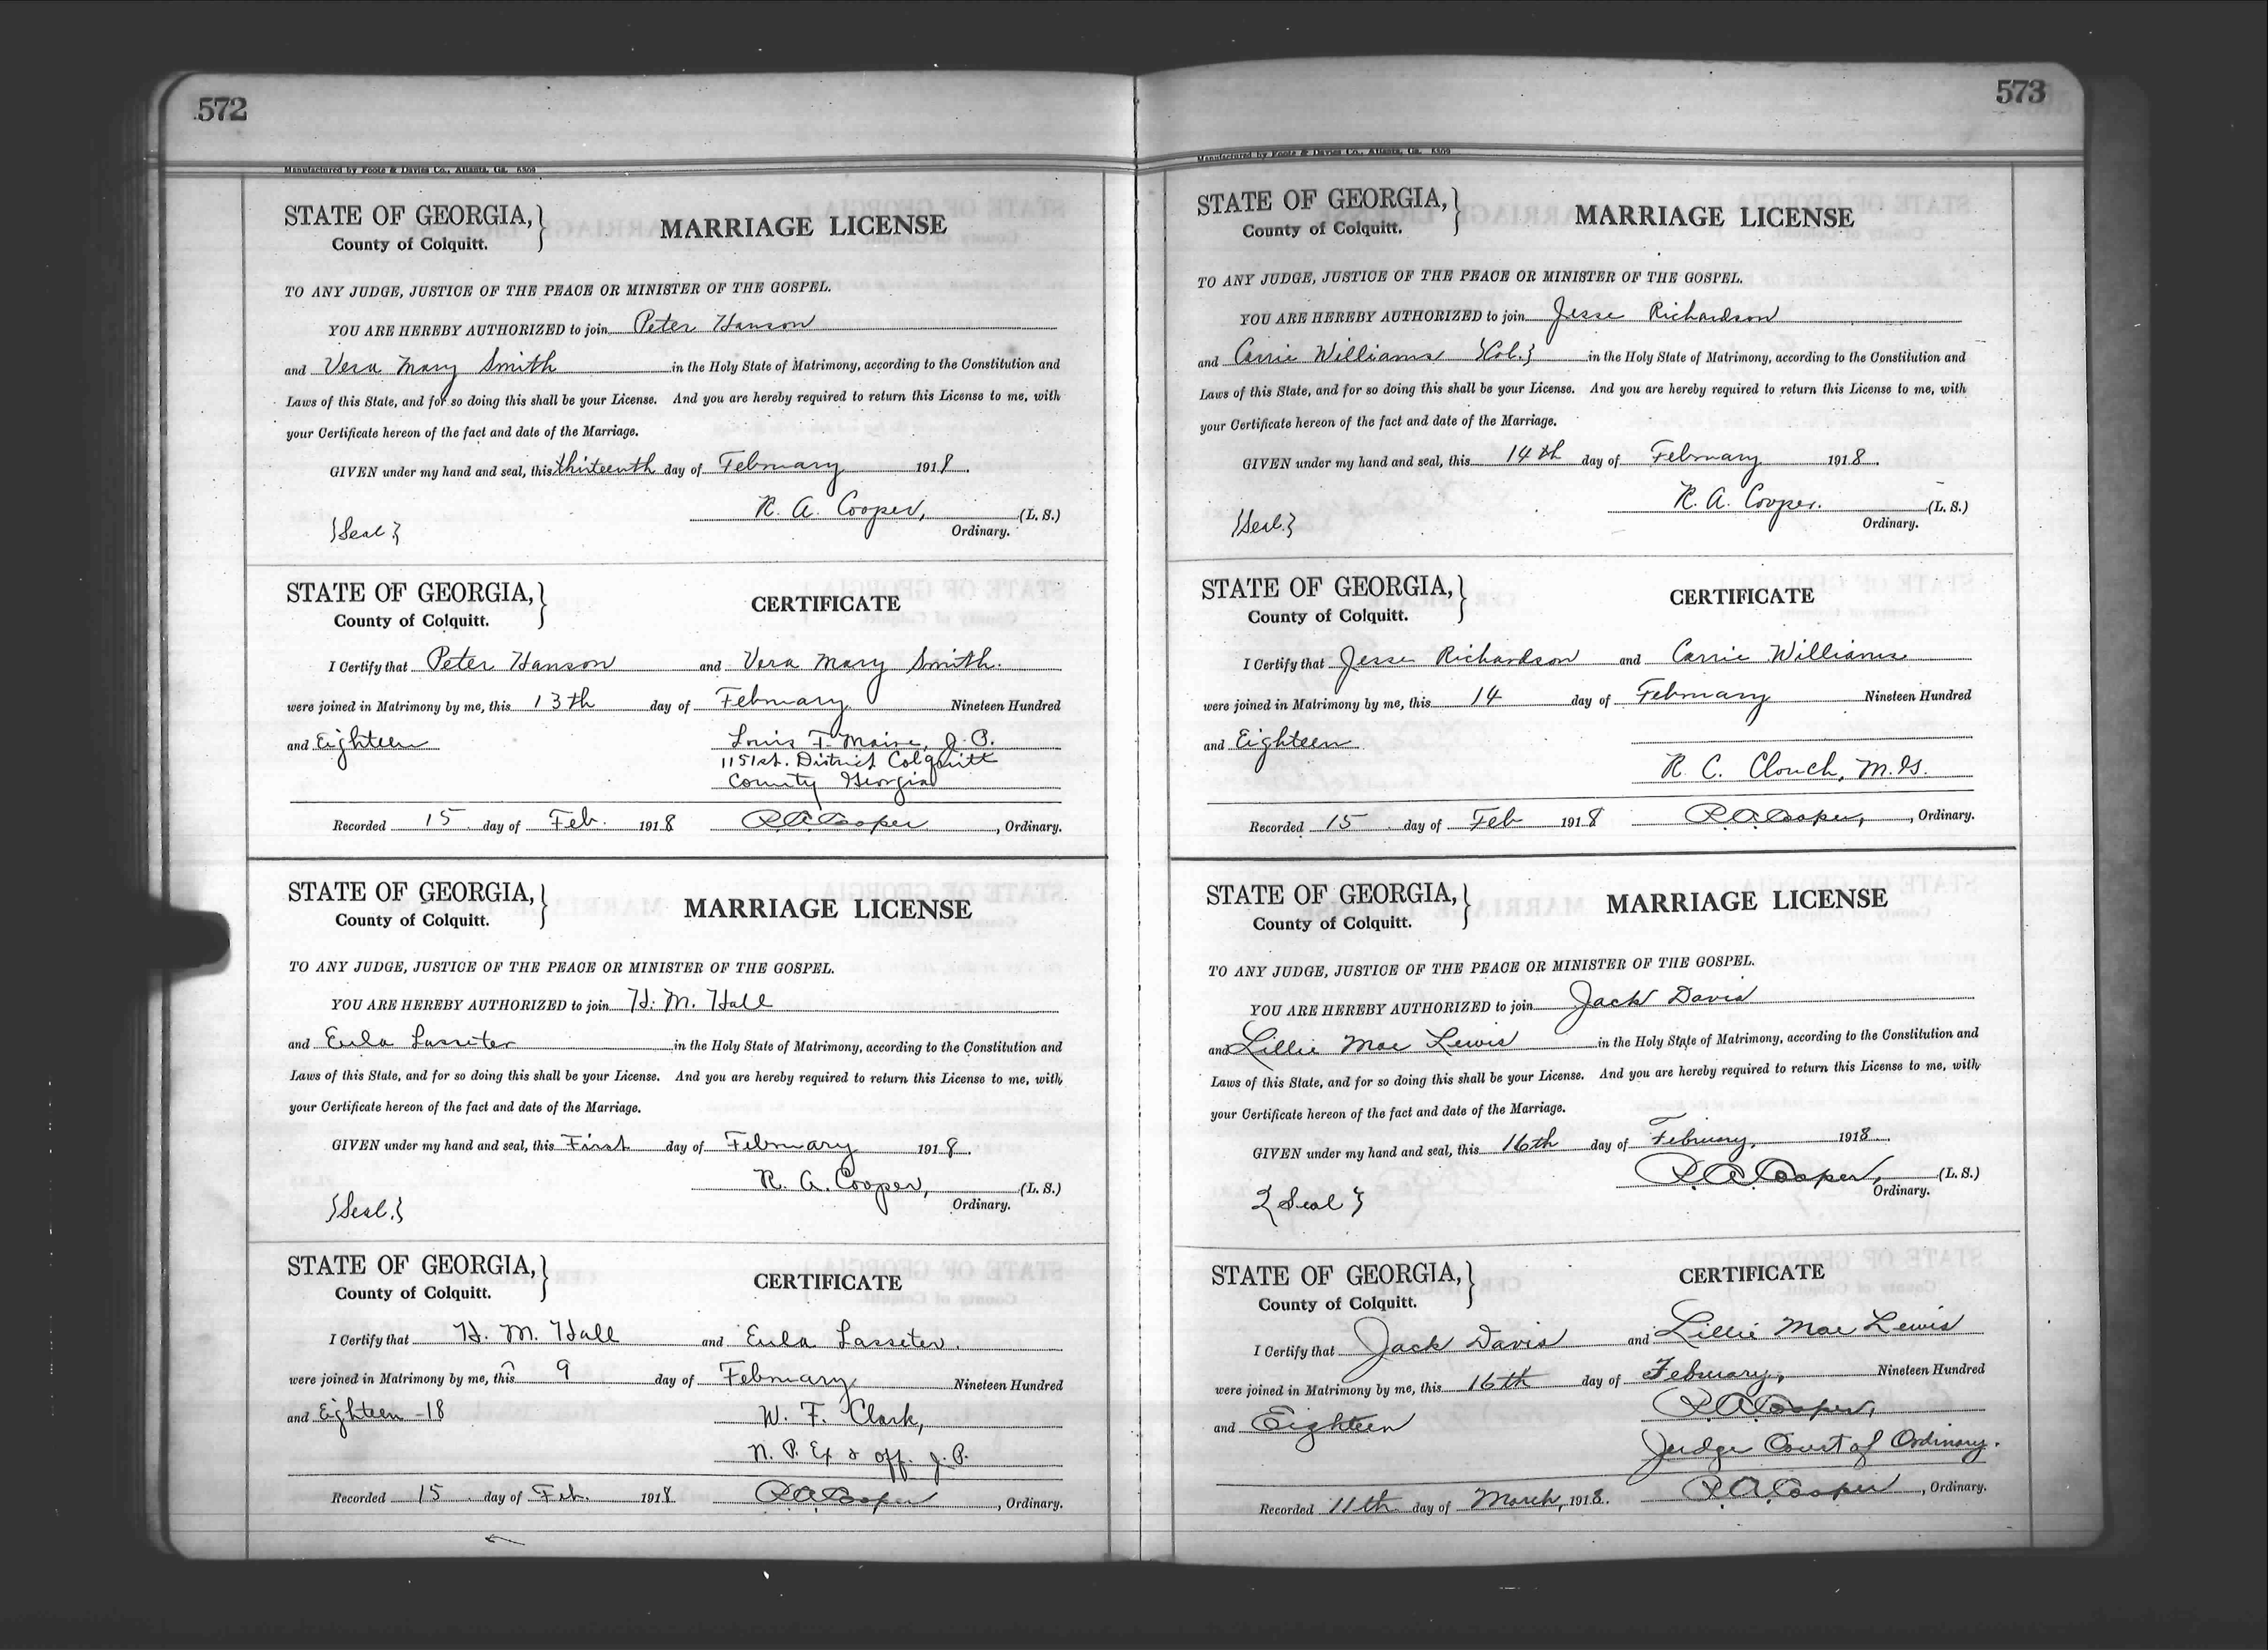 572
Manufactured by Foote & Davies Co., Atlanta, Ga.
STATE OF GEORGIA,
County of Colquitt.
MARRIAGE LICENSE
TO ANY JUDGE, JUSTICE OF THE PEACE OR MINISTER OF THE GOSPEL.
YOU ARE HEREBY AUTHORIZED to join Peter Hanson
and Vera Mary Smith in the Holy State of Matrimony, according to the Constitution and
Laws of this State, and for so doing this shall be your License. And you are hereby required to return this License to me, with
your Certificate hereon of the fact and date of the Marriage.
GIVEN under my hand and seal, this thirteenth day of February 1918.
R. A. Cooper, (L. S.)
Ordinary.
{Seal}
STATE OF GEORGIA,
County of Colquitt.
CERTIFICATE
I Certify that Peter Hanson and Vera Mary Smith.
were joined in Matrimony by me, this 13th day of February Nineteen Hundred
and Eighteen
Louis T. Maire, J. P.
1151st. District Colquitt
County Georgia
Recorded 15 day of Feb. 1918 R A Cooper, Ordinary.
STATE OF GEORGIA,
County of Colquitt.
MARRIAGE LICENSE
TO ANY JUDGE, JUSTICE OF THE PEACE OR MINISTER OF THE GOSPEL.
YOU ARE HEREBY AUTHORIZED to join H. M. Hall
and Eula Lassiter in the Holy State of Matrimony, according to the Constitution and
Laws of this State, and for so doing this shall be your License. And you are hereby required to return this License to me, with
your Certificate hereon of the fact and date of the Marriage.
GIVEN under my hand and seal, this First day of February 1918.
R. A. Cooper, (L. S.)
Ordinary.
{Seal.}
STATE OF GEORGIA,
County of Colquitt.
CERTIFICATE
I Certify that H. M. Hall and Eula Lasseter.
were joined in Matrimony by me, this 9 day of February Nineteen Hundred
and Eighteen -18
W. F. Clark,
N. P. Ex & off. J. P.
Recorded 15 day of Feb. 1918 R A Cooper, Ordinary.
573
Manufactured by Foote & Davies Co., Atlanta, Ga.
STATE OF GEORGIA,
County of Colquitt.
MARRIAGE LICENSE
TO ANY JUDGE, JUSTICE OF THE PEACE OR MINISTER OF THE GOSPEL.
YOU ARE HEREBY AUTHORIZED to join Jesse Richardson
and Carrie Williams {Col.} in the Holy State of Matrimony, according to the Constitution and
Laws of this State, and for so doing this shall be your License. And you are hereby required to return this License to me, with
your Certificate hereon of the fact and date of the Marriage.
GIVEN under my hand and seal, this 14th day of February 1918.
R. A. Cooper. (L. S.)
Ordinary.
{Seal.}
STATE OF GEORGIA,
County of Colquitt.
CERTIFICATE
I Certify that Jesse Richardson and Carrie Williams
were joined in Matrimony by me, this 14 day of February Nineteen Hundred
and Eighteen
R. C. Clouch, M.G.
Recorded 15 day of Feb 1918 R. A. Cooper, Ordinary.
STATE OF GEORGIA,
County of Colquitt.
MARRIAGE LICENSE
TO ANY JUDGE, JUSTICE OF THE PEACE OR MINISTER OF THE GOSPEL.
YOU ARE HEREBY AUTHORIZED to join Jack Davis
and Lillie Mae Lewis in the Holy State of Matrimony, according to the Constitution and
Laws of this State, and for so doing this shall be your License. And you are hereby required to return this License to me, with
your Certificate hereon of the fact and date of the Marriage.
GIVEN under my hand and seal, this 16th day of February, 1918.
R A Cooper, (L. S.)
Ordinary.
{Seal}
STATE OF GEORGIA,
County of Colquitt.
CERTIFICATE
I Certify that Jack Davis and Lillie Mae Lewis
were joined in Matrimony by me, this 16th day of February, Nineteen Hundred
and Eighteen
R A Cooper,
Judge Court of Ordinary.
Recorded 11th day of March, 1918. R. A. Cooper, Ordinary.